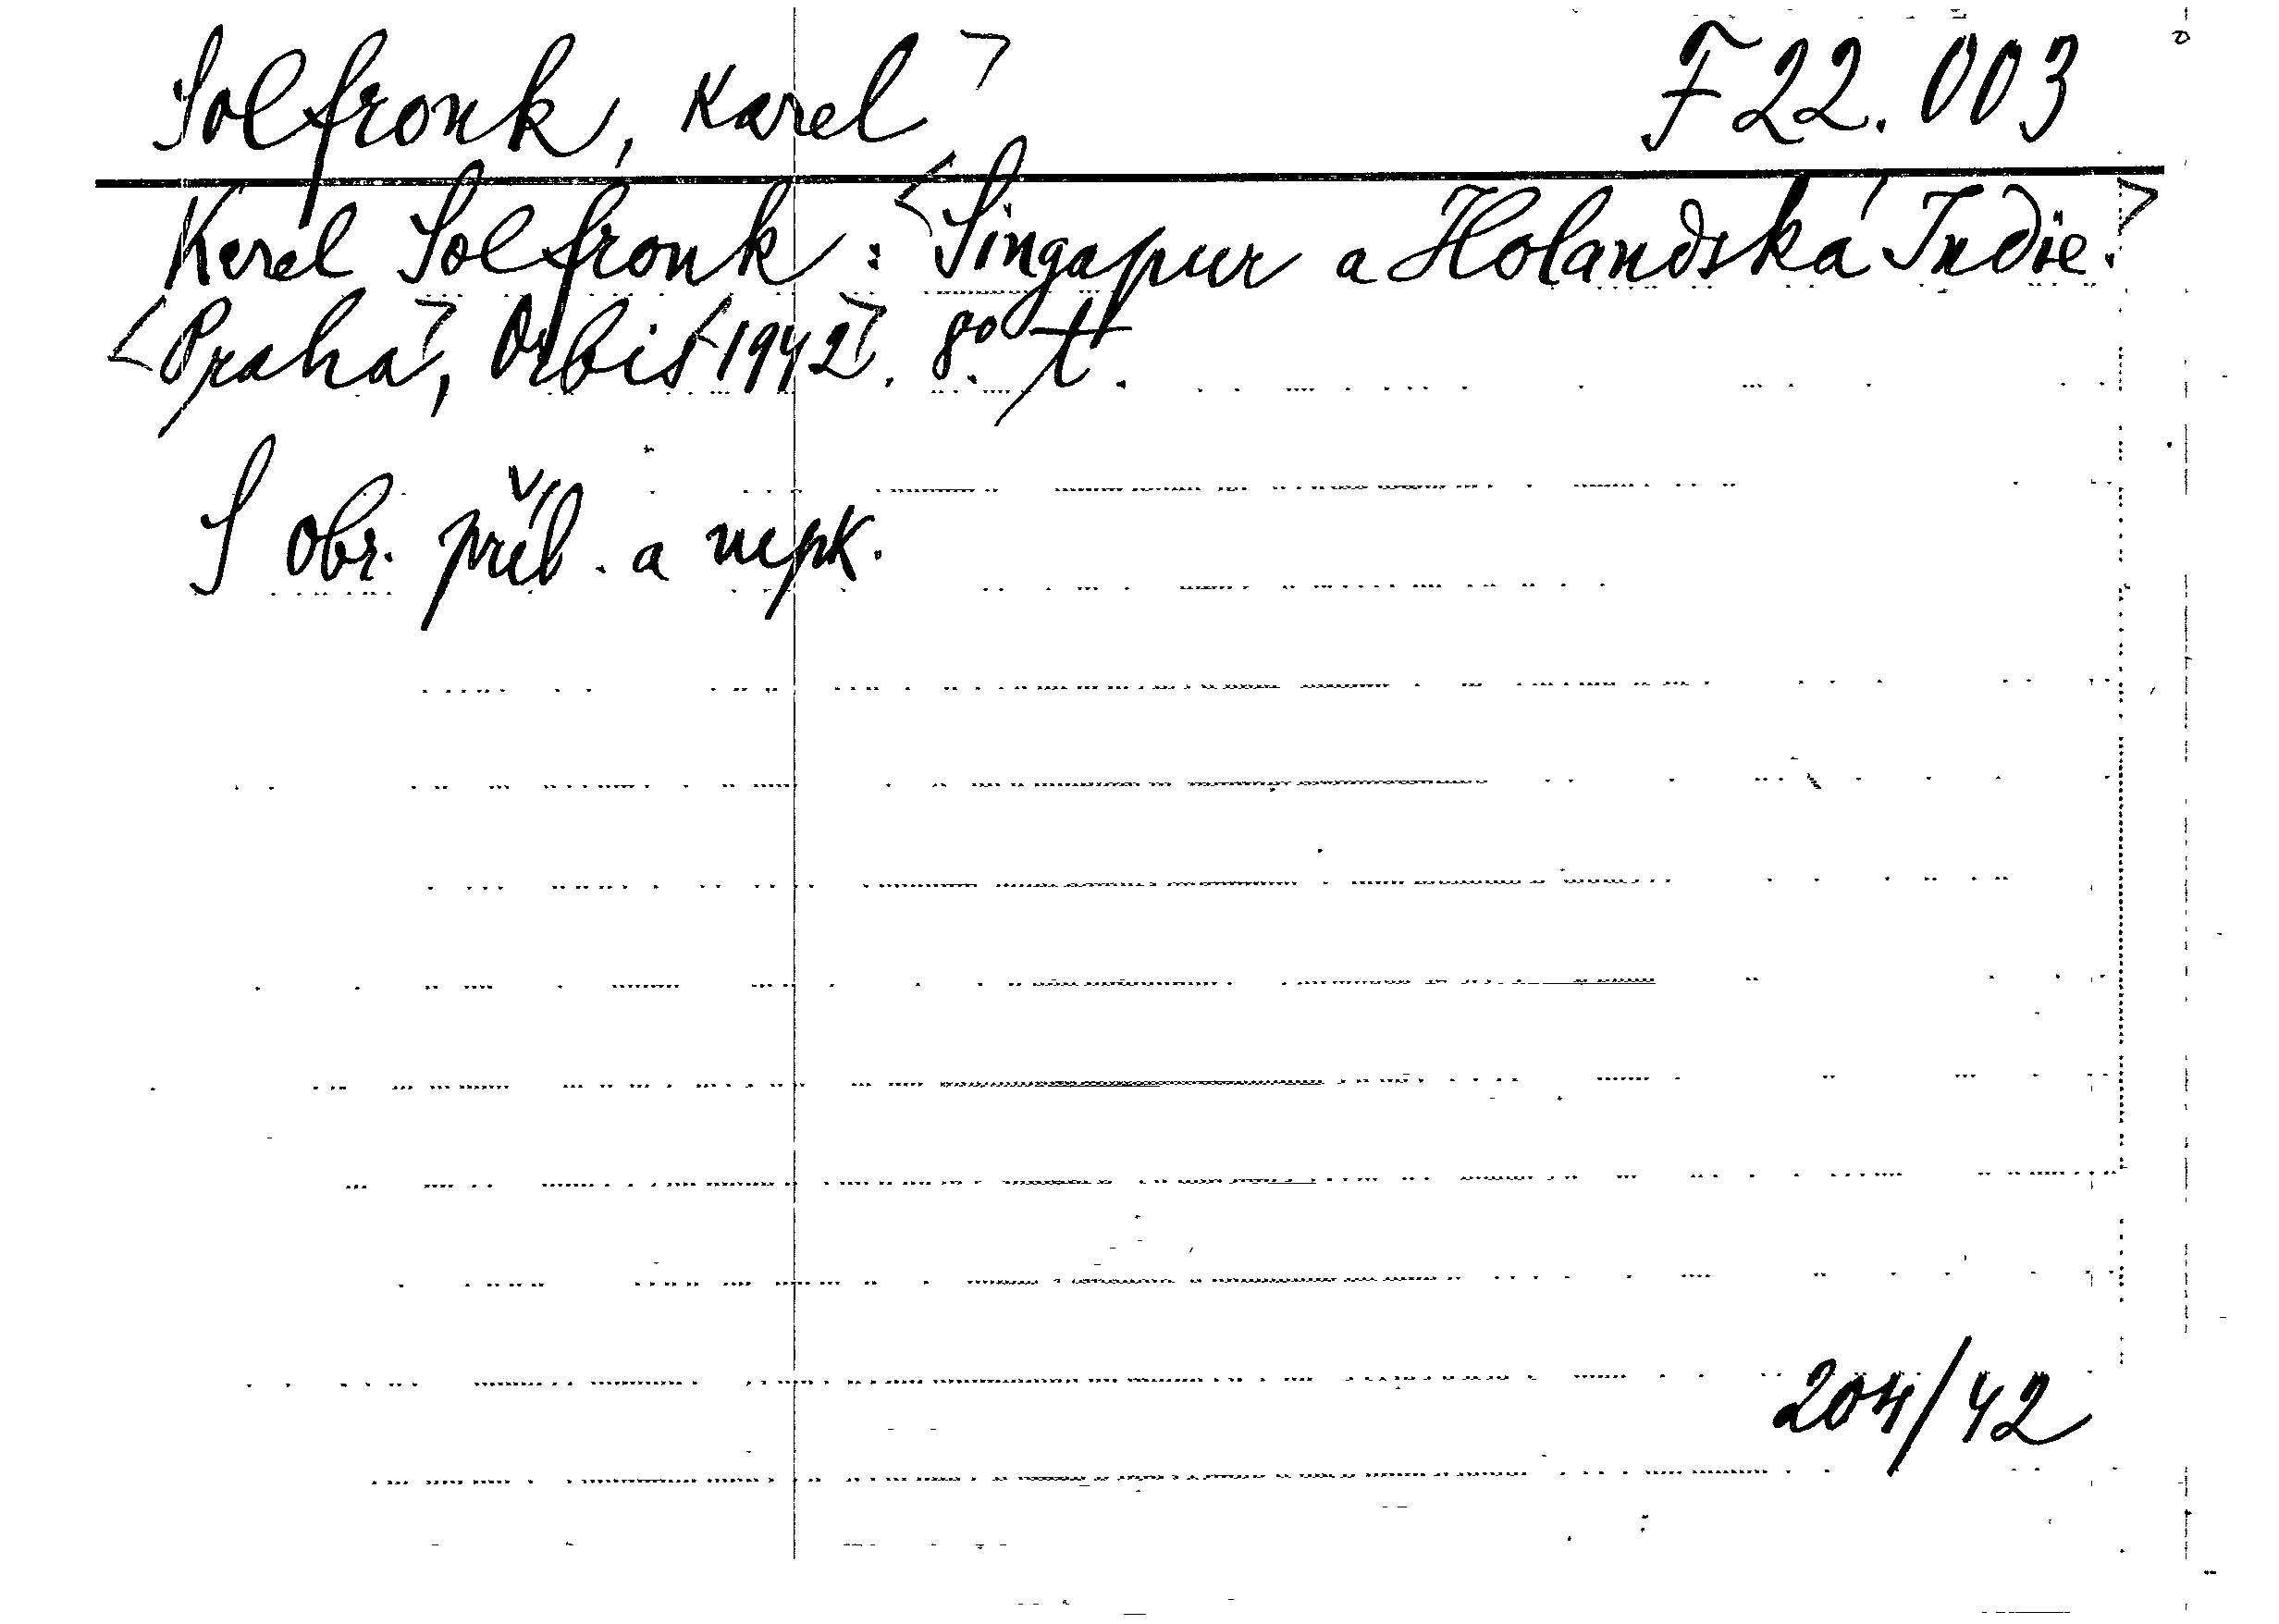 Solfronk, Karel > F 22.003
Karel Solfronk: <Singapur a Holandská Indie.>
<Praha>, Orbis <1942>. 8° t.
S obr. příl. a
204/42